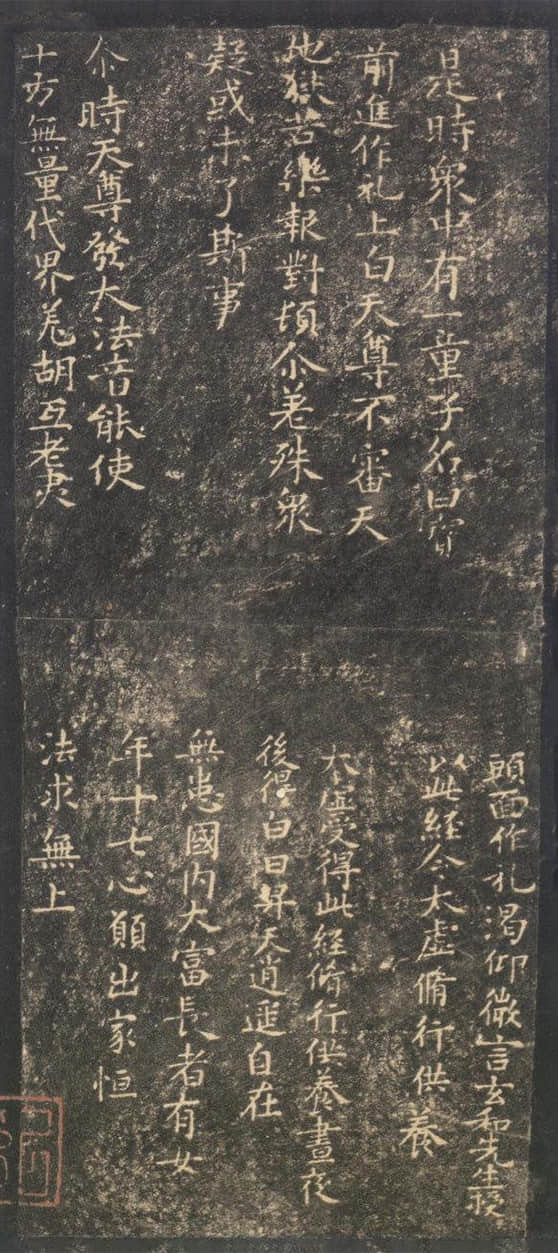 是時衆中有一童子名曰寶
前進作礼上白天尊不審天
地獄苦樂報對頓尒差殊衆
疑或未了斯事
尒時天尊發大法音能使
十方無量代界羌胡互老夷
頭面作礼渴仰微言玄和先生授
以此經令太虛脩行供養
太虛受得此經脩行供養晝夜
後得白日昇天逍遥自在
無恚國內大富長者有女
年十七心願出家恒
法求無上